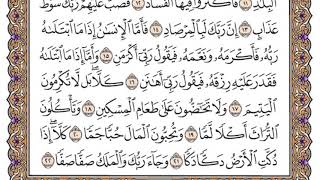 ٱلْبِلَٰدِ ١١ فَأَكْثَرُوا۟ فِيهَا ٱلْفَسَادَ ١٢ فَصَبَّ عَلَيْهِمْ رَبُّكَ سَوْطَ
عَذَابٍ ١٣ إِنَّ رَبَّكَ لَبِٱلْمِرْصَادِ ١٤ فَأَمَّا ٱلْإِنسَٰنُ إِذَا مَا ٱبْتَلَىٰهُ
رَبُّهُۥ فَأَكْرَمَهُۥ وَنَعَّمَهُۥ فَيَقُولُ رَبِّىٓ أَكْرَمَنِ ١٥ وَأَمَّآ إِذَا مَا ٱبْتَلَىٰهُ
فَقَدَرَ عَلَيْهِ رِزْقَهُۥ فَيَقُولُ رَبِّىٓ أَهَٰنَنِ ١٦ كَلَّا ۖ بَل لَّا تُكْرِمُونَ
ٱلْيَتِيمَ ١٧ وَلَا تَحَٰٓضُّونَ عَلَىٰ طَعَامِ ٱلْمِسْكِينِ ١٨ وَتَأْكُلُونَ
ٱلتُّرَاثَ أَكْلًا لَّمًّا ١٩ وَتُحِبُّونَ ٱلْمَالَ حُبًّا جَمًّا ٢٠ كَلَّآ إِذَا
دُكَّتِ ٱلْأَرْضُ دَكًّا دَكًّا ٢١ وَجَآءَ رَبُّكَ وَٱلْمَلَكُ صَفًّا صَفًّا ٢٢